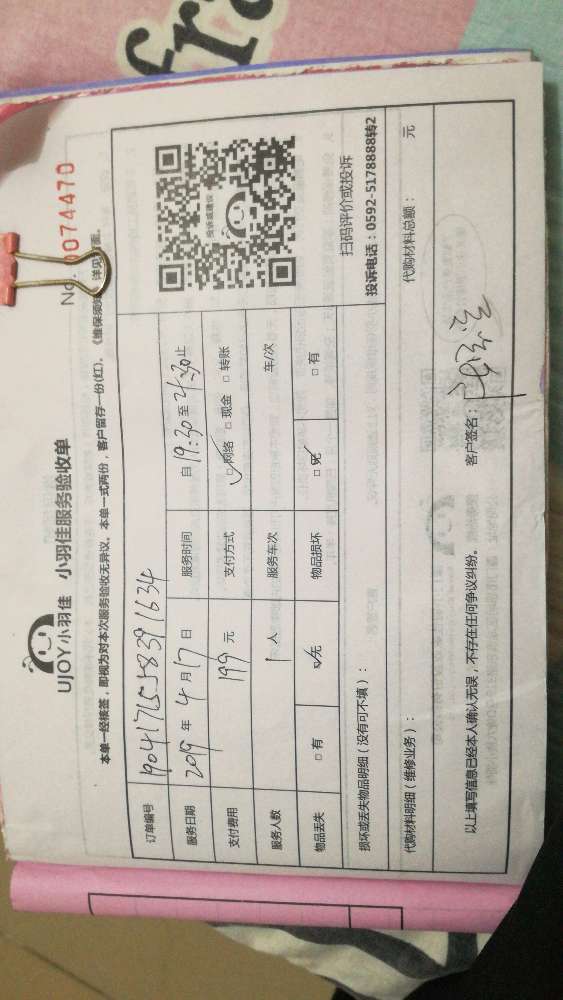 fra
No. 0074470
UJOY小羽佳 小羽佳服务验收单
本单一经核签，即视为对本次服务验收无异议。本单一式两份，客户留存一份(红)。《维保须知》详见背面。
订单编号 190417155839 1634
服务日期 2019 年 4 月 17 日 服务时间 自 19:30 至 21:30 止
支付费用 199 元 支付方式 ☑网络 □现金 □转账
服务人数 1 人 服务车次 车/次
物品丢失 □有 ☑无 物品损坏 ☑无 □有
投诉或建议
扫码评价或投诉
投诉电话：0592-5178888转2
损坏或丢失物品明细（没有可不填）：
代购材料明细（维修业务）： 代购材料总额： 元
以上填写信息已经本人确认无误，不存在任何争议纠纷。 客户签名：